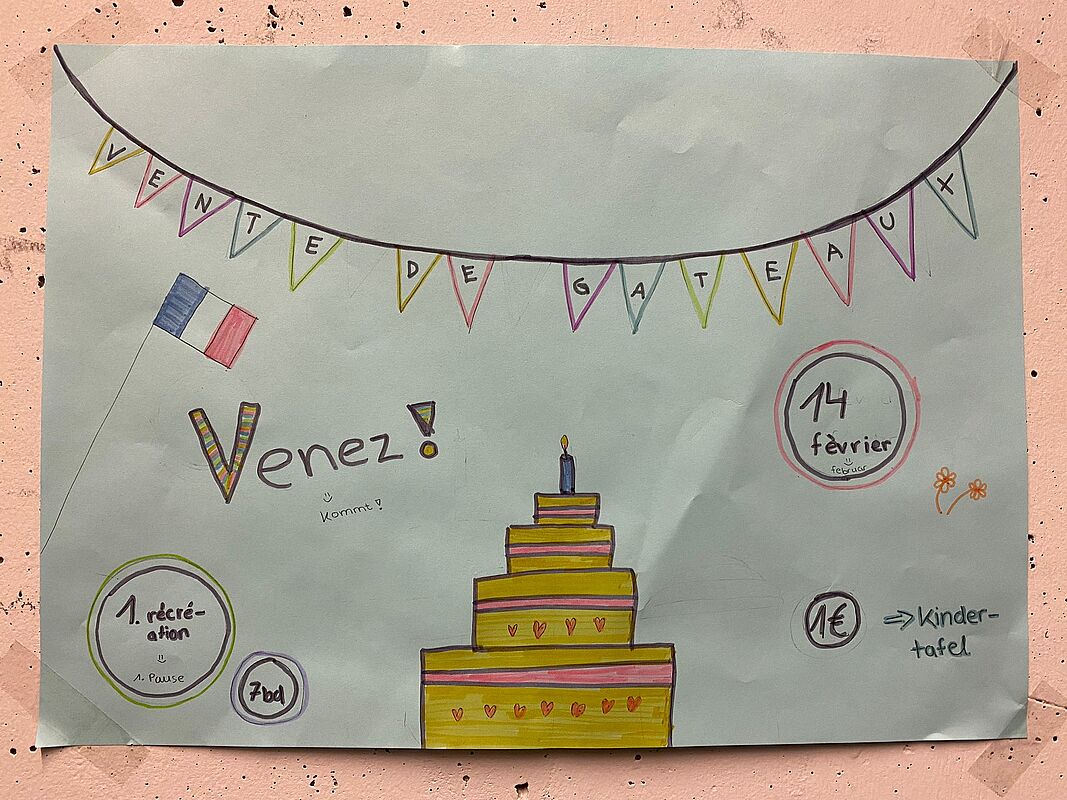 VENTE DE GATEAUX
Venez!
Kommt!
14
fèvrier
februar
1. récré-
ation
1. Pause
7bd
1€ => Kinder-
tafel